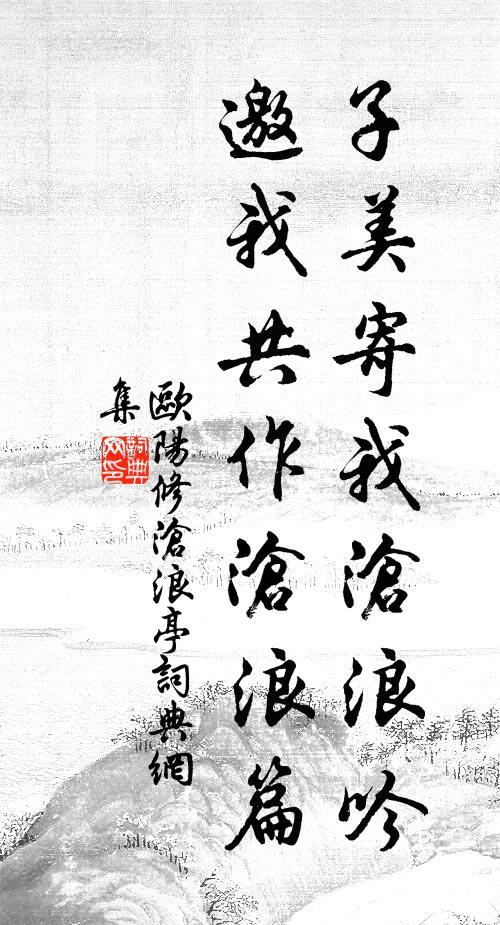 子美寄我滄浪吟
邀我共作滄浪篇
歐陽修滄浪亭詞典網
集
詞典
网印